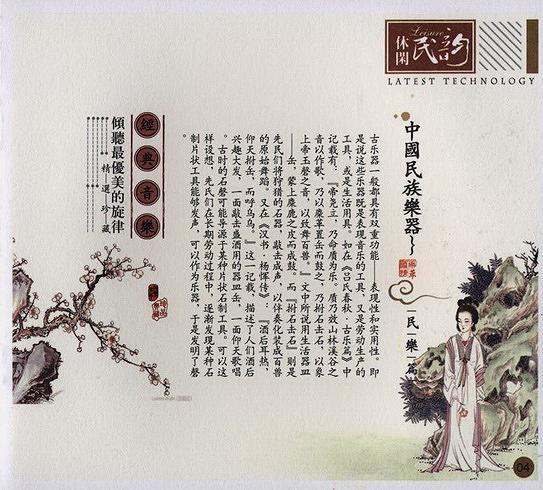 休閑
民韵
Leisure
LATEST TECHNOLOGY
中國民族樂器
民樂篇
古乐器一般都具有双重功能——表现性和实用性。即
是说这些乐器既是表现音乐的工具，又是劳动生产的
工具，或是生活用具。如在《吕氏春秋·古乐篇》中
记载有：『帝尧立，乃命质为乐。质乃效山林溪谷之
音以作歌，乃以麋革置缶而鼓之，乃拊石击石，以象
上帝玉磬之音，以致舞百兽。』文中所说用生活器皿
——缶，蒙上麋鹿之皮而成鼓。而『拊石击石』则是
先民们将狩猎的石器，敲击成声，以伴奏化装成百兽
的原始舞蹈。又在《汉书·杨恽传》：『酒后耳热，
仰天拊缶，而呼乌乌。』这一记载，描述了人们酒后
兴趣大发，一面敲击盛酒用的器皿缶，一面仰天歌唱
。古时的石磬可能导源于某种片状石制工具。可以这
样设想，先民们在长期劳动过程中，逐渐发现某种石
制片状工具能够发声，可以作为乐器，于是发明了磬
。
經典音樂
傾聽最優美的旋律
精選珍藏
04